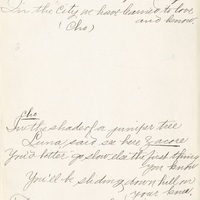 In the City we have learned to love
and know.
(Cho)
Cho
In the shade of a juniper tree
Luna, said so here
You'd better go slow, else the first thing
you know
You'll be sliding down hill on
your